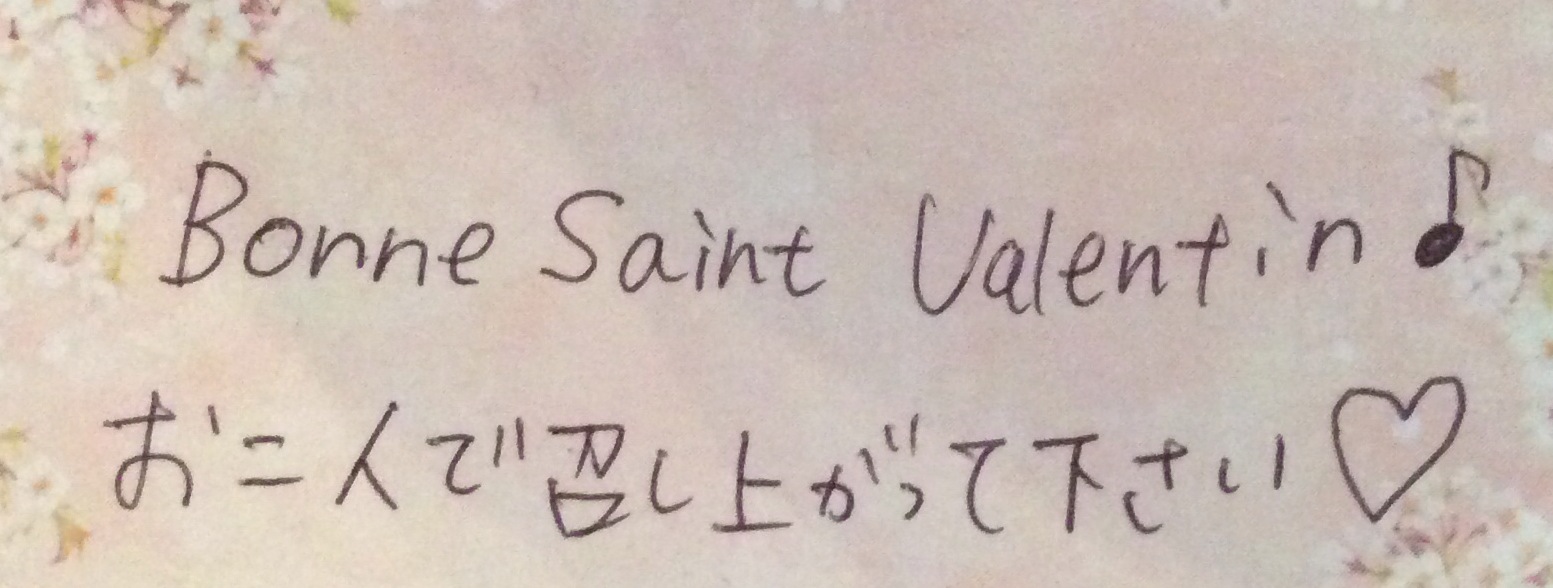 Bonne Saint Valentin♪
お二人で召し上がって下さい♡